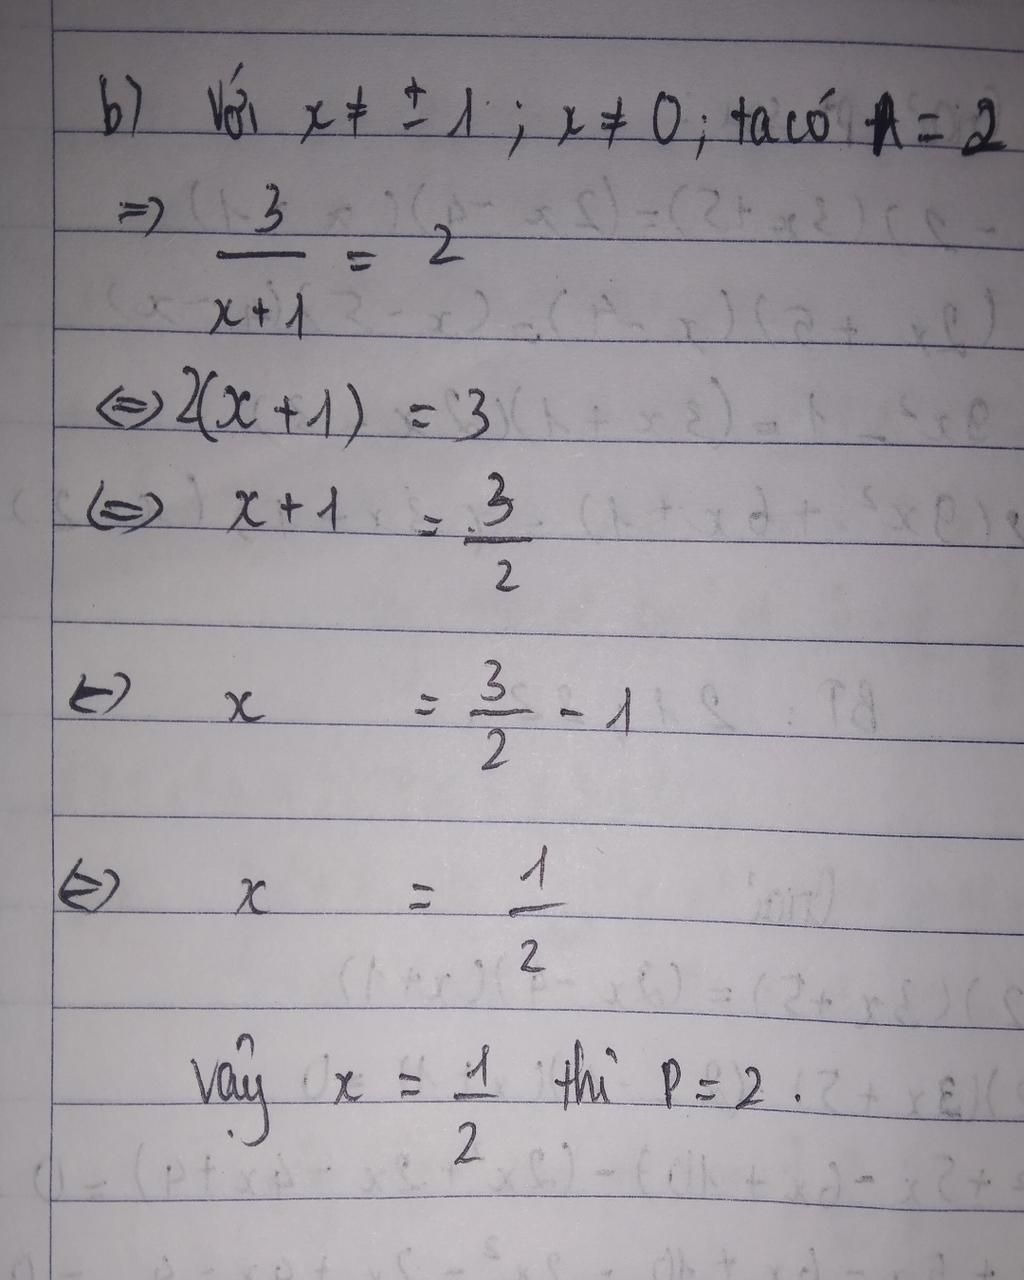 b) Với x ≠ ± 1 ; x ≠ 0 ; ta có A = 2
=> 3/(x+1) = 2
<=> 2(x+1) = 3
<=> x+1 = 3/2
<=> x = 3/2 - 1
<=> x = 1/2
vậy x = 1/2 thì P = 2 .